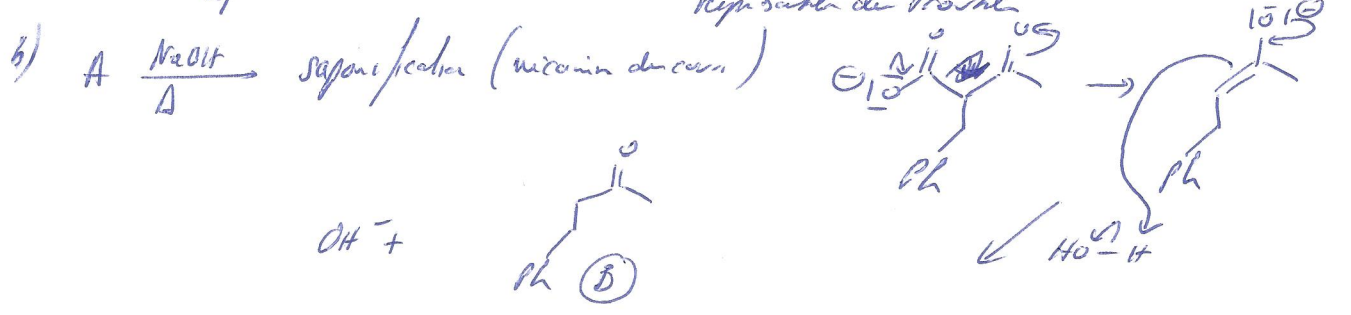 b) A NaOH Δ saponification (mécanisme du cours)
O O ⊖ O Ph
|O|⊖ Ph
HO–H
OH⁻ + O Ph B